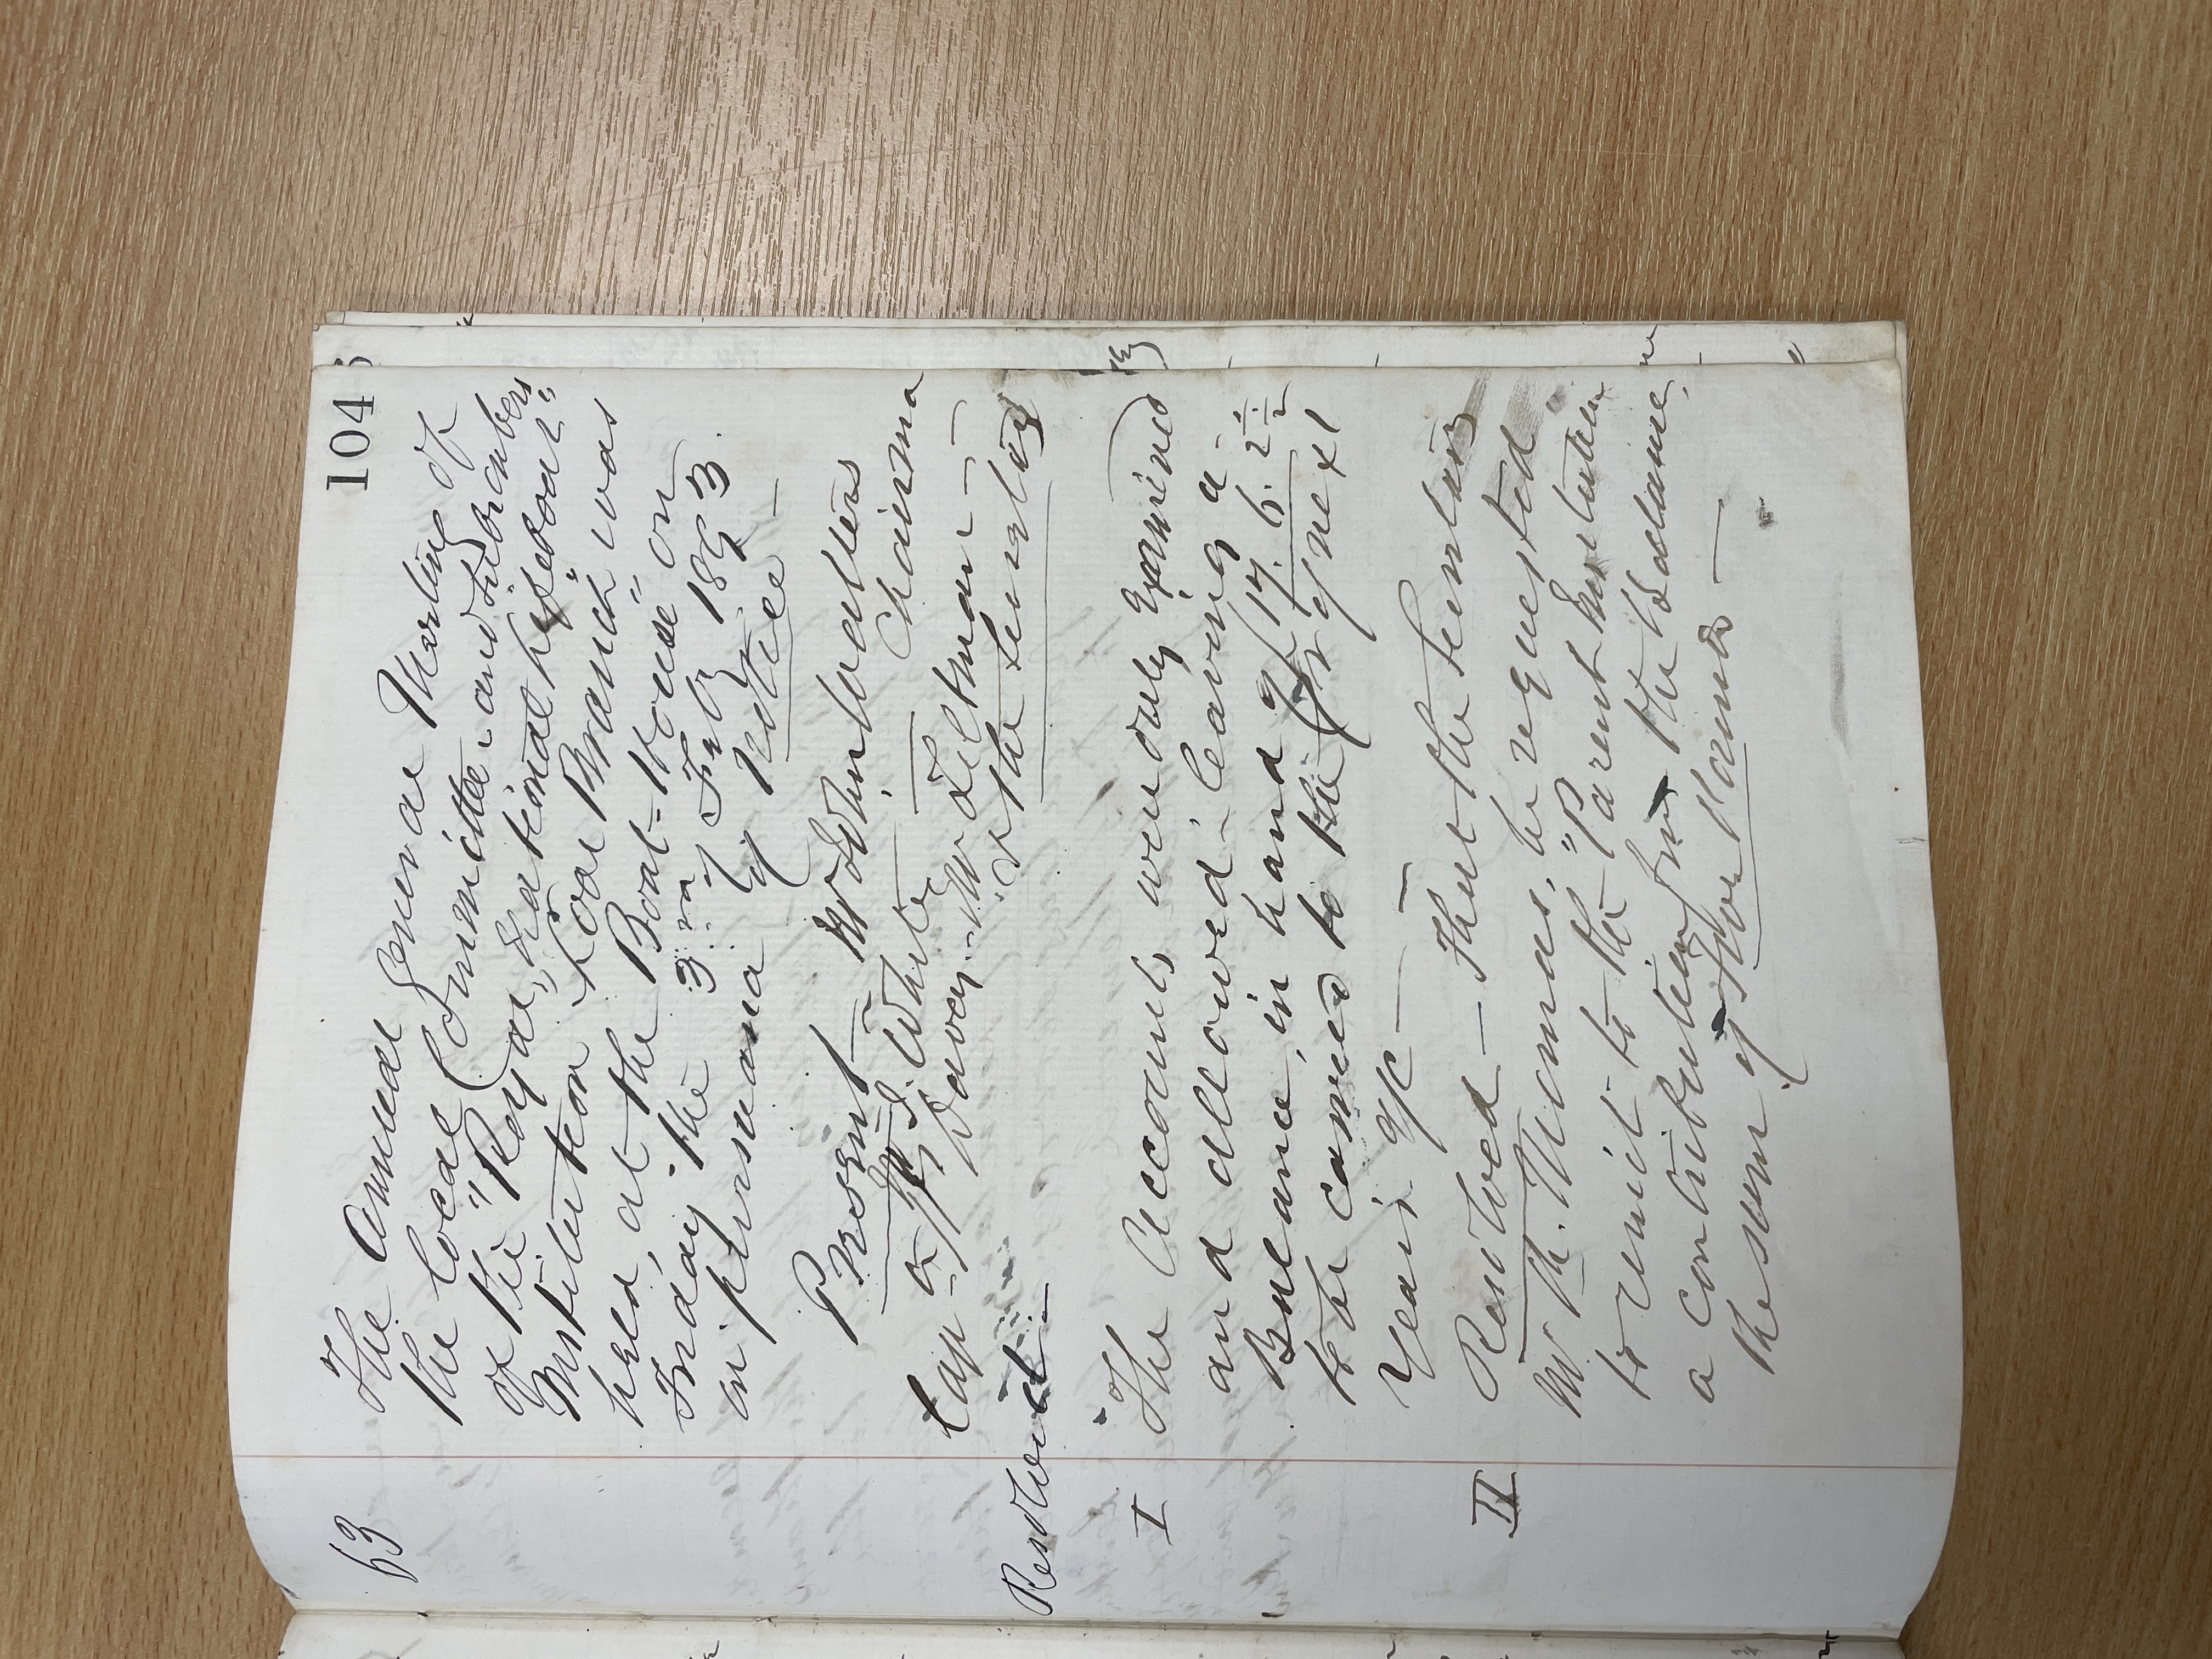 104
63
The Annual General Meeting of
the Local Committee and Subscribers
of the "Royal National Lifeboat"
Institution Looe Branch" was
held, at the Boat-House" on
Friday the 3rd of Feby 1893.
in pursuance of Notice —
Present — Mr
Chairman
Mr S. White
Capn Davey — Mr Toltman —
& the Secretary
Resolved —
I The Accounts were duly Examined
and allowed - leaving a -
Balance, in hand of 17. 6. 2½
to be carried to the Cr of next
Years a/c —
II Resolved — That the Secretary
Mr Th. Thomas, be requested
to remit - to the "Parent Institution
a contribution from the balance,
the sum of Five Pounds —